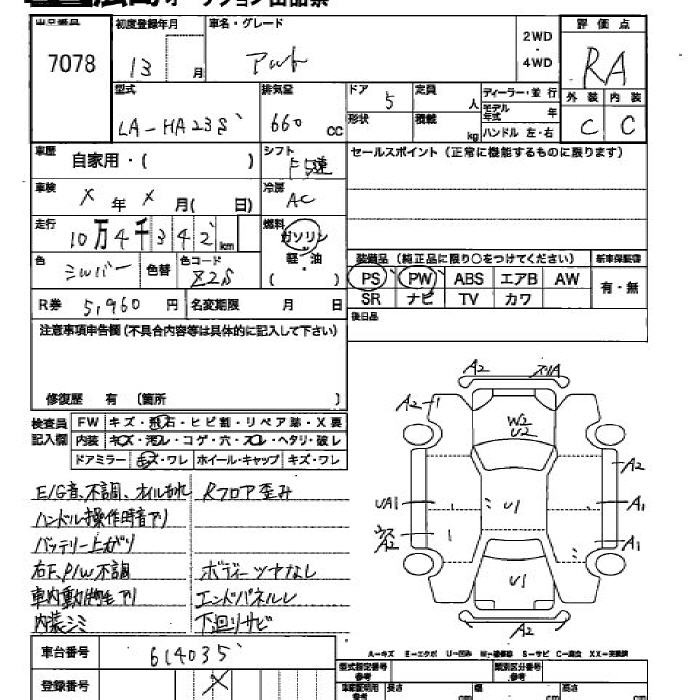 出品番号 初度登録年月 車名・グレード 評価点
7078 13 月 アルト 2WD・4WD RA
型式 排気量 ドア 5 定員 人 ディーラー・並行 外装 内装
LA-HA23S 660 CC 形状 積載 kg モデル年式 年 ハンドル 左・右 C C
車歴 自家用・( ) シフト F5速 セールスポイント(正常に機能するものに限ります)
車検 X 年 X 月( 日) 冷房 AC
走行 10万4千342km 燃料 ガソリン 軽・油 ( )
色 シルバー 色替 色コード Z2S 装備品(純正品に限り○をつけてください) 新車保証書
PS PW ABS エアB AW 有・無
R券 5,960 円 名変期限 月 日 SR ナビ TV カワ
注意事項申告欄(不具合内容等は具体的に記入して下さい) 後日品
修復歴 有 〔箇所 〕
検査員記入欄 FW キズ・飛石・ヒビ割・リペア跡・X要
内装 キズ・汚レ・コゲ・穴・スレ・ヘタリ・破レ
ドアミラー キズ・ワレ ホイール・キャップ キズ・ワレ
A2
A2
W2
U2
A2
UA1 U1 A1
A2 A1
U1
A2
E/G音、不調、オイルもれ Rフロア歪み
ハンドル操作時音アリ
バッテリー上がり
右F、P/W不調 ボディーツヤなし
車内動物毛アリ エンドパネルU
内装シミ 下廻りサビ
A-キズ E-エクボ U-凹み W-補修跡 S-サビ C-腐食 XX-交換跡
車台番号 614035 型式指定番号 参考 類別区分番号 参考
登録番号 X 車庫証明用 参考 長さ cm 幅 cm 高さ cm